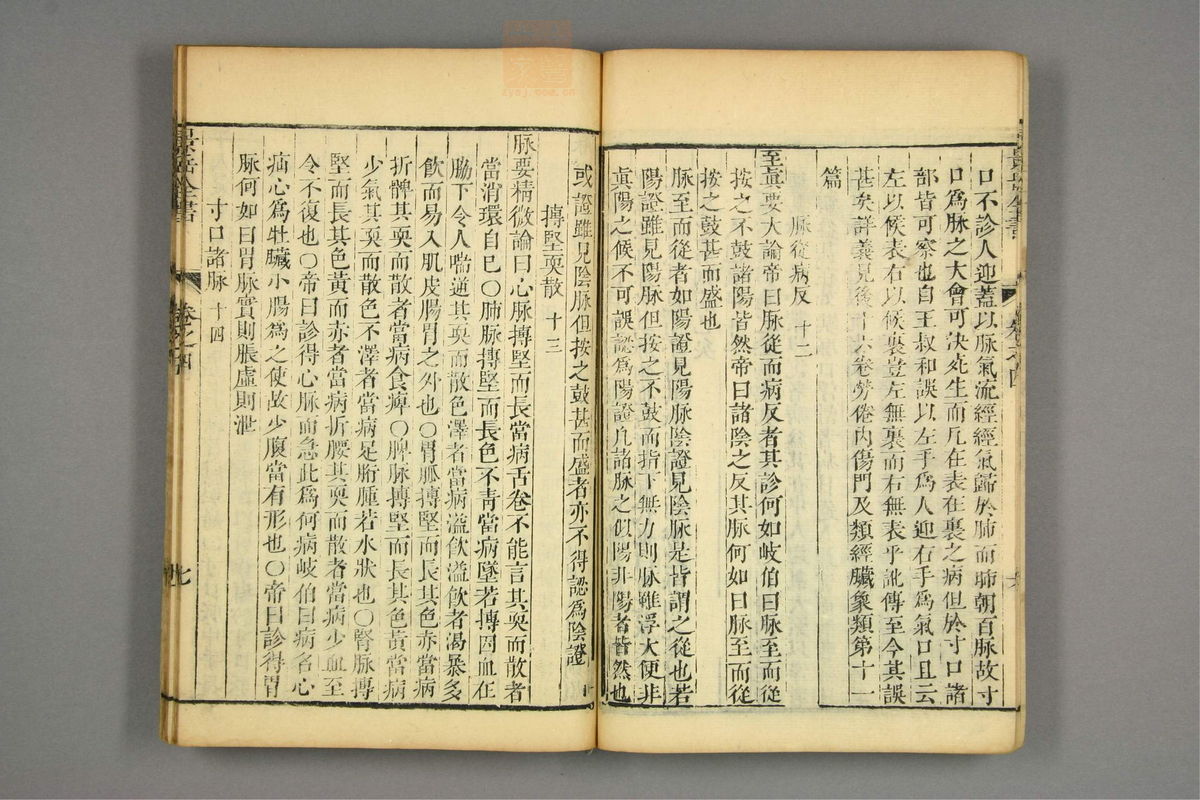 口不診人迎蓋以脉氣流經經氣歸於肺而肺朝百脉故寸
口爲脉之大會可決死生而凡在表在裏之病但於寸口諸
部皆可察也自王叔和誤以左手爲人迎右手爲氣口且云
左以候表右以候裏豈左無裏而右無表乎訛傳至今其誤
甚矣詳義見後十六卷勞倦内傷門及類經臟象類第十一
篇
脉從病反 十二
至眞要大論帝曰脉從而病反者其診何如岐伯曰脉至而從
按之不鼓諸陽皆然帝曰諸陰之反其脉何如曰脉至而從
按之鼓甚而盛也
脉至而從者如陽證見陽脉陰證見陰脉是皆謂之從也若
陽證雖見陽脉但按之不鼓而指下無力則脉雖浮大便非
眞陽之候不可誤認爲陽證凡諸脉之似陽非陽者皆然也
或證雖見陰脉但按之鼓甚而盛者亦不得認爲陰證
搏堅耎散 十三
脉要精微論曰心脉搏堅而長當病舌卷不能言其耎而散者
當消環自已〇肺脉搏堅而長色不青當病墜若搏因血在
脇下令人喘逆其耎而散色澤者當病溢飲溢飲者渴暴多
飲而易入肌皮腸胃之外也〇胃脉搏堅而長其色赤當病
折髀其耎而散者當病食痺〇脾脉搏堅而長其色黃當病
少氣其耎而散色不澤者當病足胻腫若水狀也〇腎脉搏
堅而長其色黃而赤者當病折腰其耎而散者當病少血至
令不復也〇帝曰診得心脉而急此爲何病岐伯曰病名心
疝心爲牡臟小腸爲之使故少腹當有形也〇帝曰診得胃
脉何如曰胃脉實則脹虛則泄
寸口諸脉 十四
景岳全書
卷之四
七